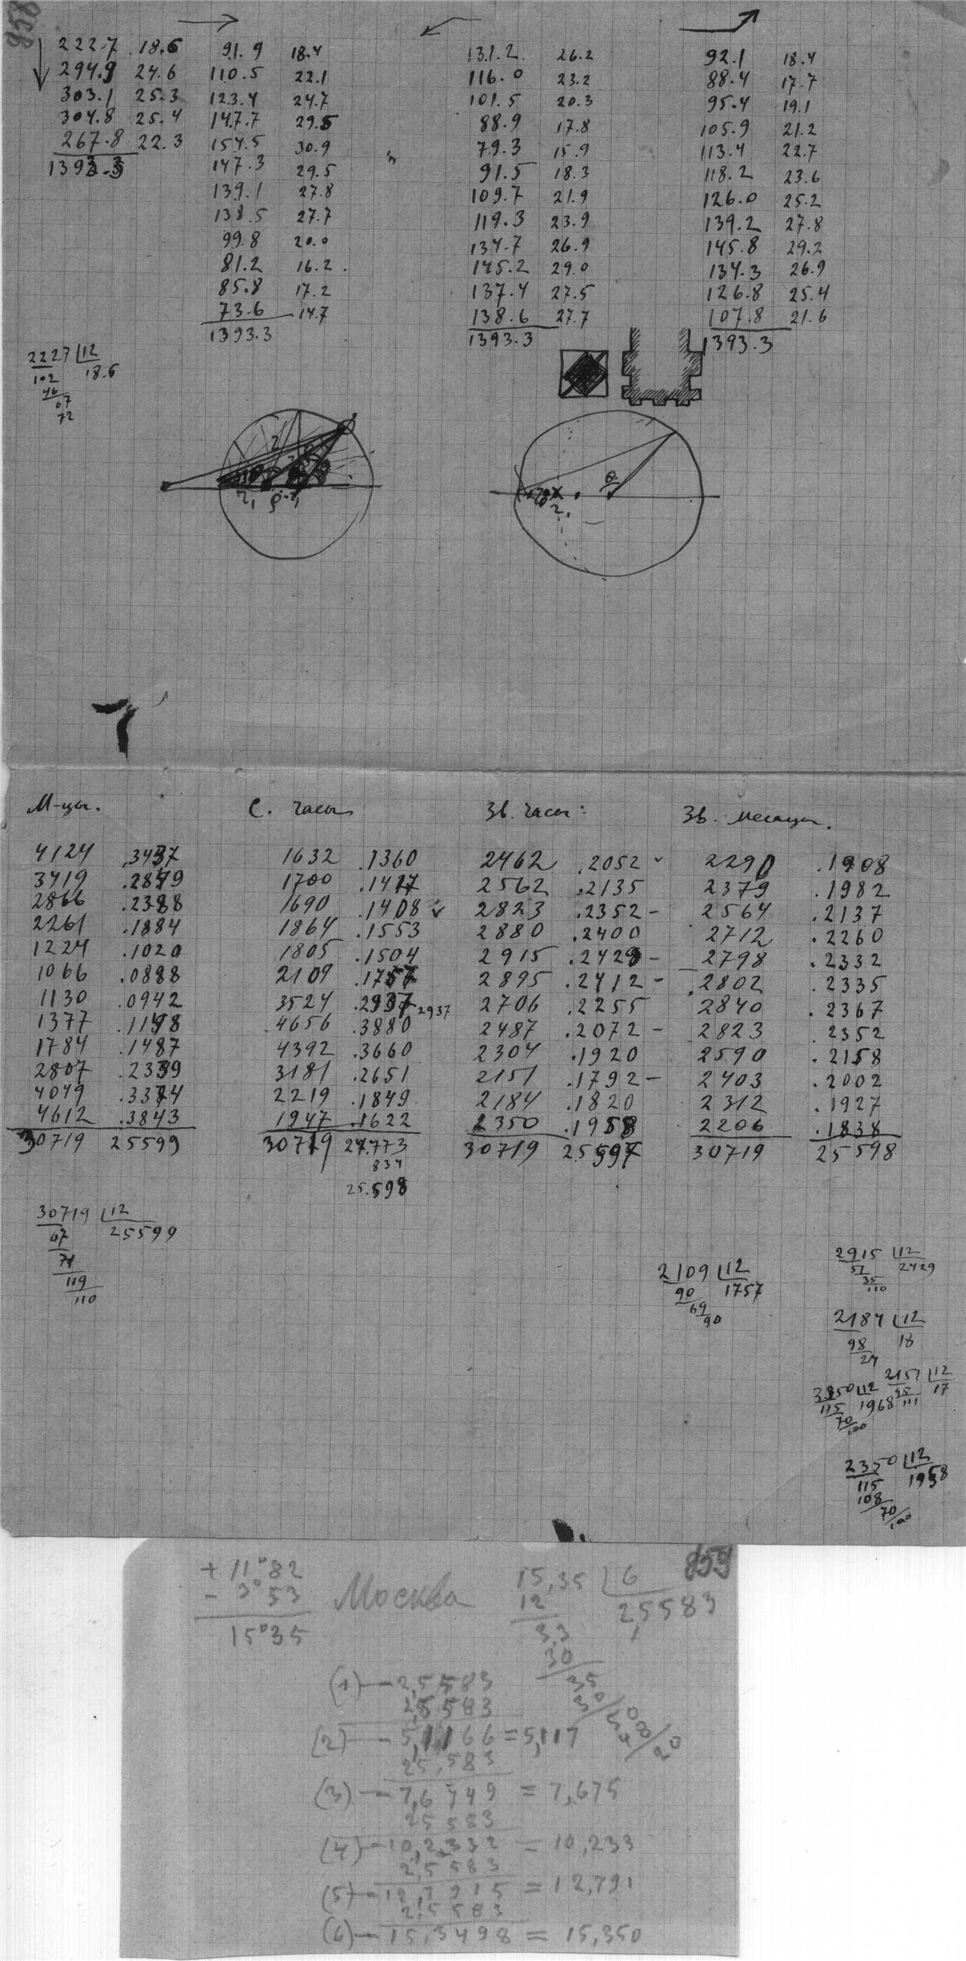 958
222.7 18.6
294.9 24.6
303.1 25.3
304.8 25.4
267.8 22.3
1393.3
91.9 18.4
110.5 22.1
123.4 24.7
147.7 29.5
154.5 30.9
147.3 29.5
139.1 27.8
138.5 27.7
99.8 20.0
81.2 16.2
85.8 17.2
73.6 14.7
1393.3
131.2 26.2
116.0 23.2
101.5 20.3
88.9 17.8
79.3 15.9
91.5 18.3
109.7 21.9
119.3 23.9
134.7 26.9
145.2 29.0
137.4 27.5
138.6 27.7
1393.3
92.1 18.4
88.4 17.7
95.4 19.1
105.9 21.2
113.4 22.7
118.2 23.6
126.0 25.2
139.2 27.8
145.8 29.2
134.3 26.9
126.8 25.4
107.8 21.6
1393.3
2227 12
102 18.6
46
67
72
М-цы.
4124 .3437
3419 .2849
2866 .2388
2261 .1884
1224 .1020
1066 .0888
1130 .0942
1377 .1148
1784 .1487
2807 .2339
4049 .3374
4612 .3843
30719 25599
С. часы
1632 .1360
1700 .1417
1690 .1408
1864 .1553
1805 .1504
2109 .1757
3524 .2937 2937
4656 .3880
4392 .3660
3181 .2651
2219 .1849
1947 .1622
30719 24.773
834
25.598
Зв. часы:
2462 .2052
2562 .2135
2823 .2352 -
2880 .2400
2915 .2429 -
2895 .2412 -
2706 .2255
2487 .2072 -
2304 .1920
2151 .1792 -
2184 .1820
2350 .1958
30719 25597
Зв. месяцы.
2290 .1908
2379 .1982
2564 .2137
2712 .2260
2798 .2332
2802 .2335
2840 .2367
2823 .2352
2590 .2158
2403 .2002
2312 .1927
2206 .1838
30719 25598
30719 12
67 25599
71
119
110
2109 12
90 1757
69
90
2915 12
51 2429
35
110
2184 12
98 18
24
2151 12
95 17
111
3850 12
115 1968
70
100
2350 12
115 1958
108
70
100
859
+ 11°82
- 3°53
15°35
Москва
15,35 6
12 2,5583
33
30
35
30
50
48
20
(1) — 2,5583
2,5583
(2) — 5,1166 = 5,117
25,583
(3) — 7,6749 = 7,675
25583
(4) — 10,2332 = 10,233
2,5583
(5) — 12,7915 = 12,791
2,5583
(6) — 15,3498 = 15,350